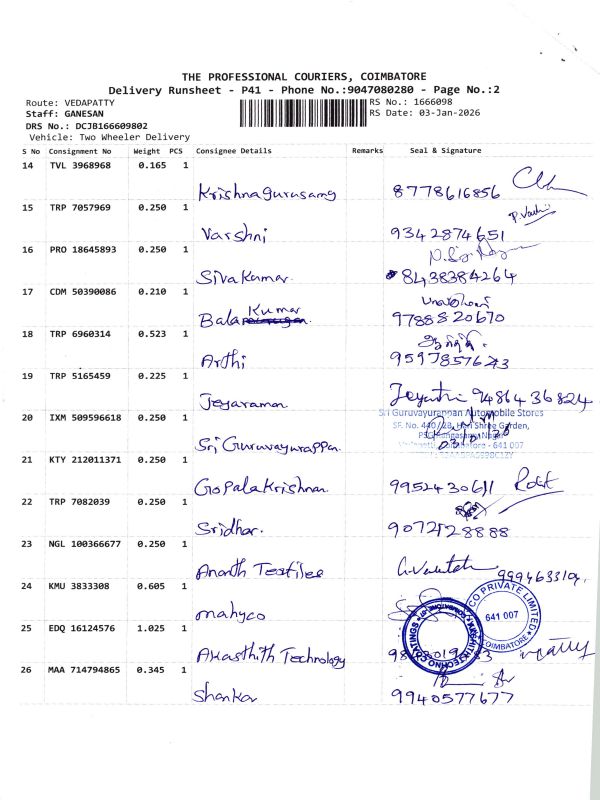 THE PROFESSIONAL COURIERS, COIMBATORE
Delivery Runsheet - P41 - Phone No.:9047080280 - Page No.:2
Route: VEDAPATTY
RS No.: 1666098
Staff: GANESAN
RS Date: 03-Jan-2026
DRS No.: DCJB166609802
Vehicle: Two Wheeler Delivery
S No Consignment No Weight PCS Consignee Details Remarks Seal & Signature
14 TVL 3968968 0.165 1
Krishnagurusamy 8778616856
15 TRP 7057969 0.250 1
Varshni 9342874651
16 PRO 18645893 0.250 1
Sivakumar. 8438384264
17 CDM 50390086 0.210 1
Kumar
Bala 9788820670
18 TRP 6960314 0.523 1
Arthi
19 TRP 5165459 0.225 1
Jeyaraman 9486436824
20 IXM 509596618 0.250 1
Sri Guruvayurappan Automobile Stores
Garden,
641 007
Sri Guruvayurappan.
21 KTY 212011371 0.250 1
GopalaKrishnan 9952430611
22 TRP 7082039 0.250 1
Sridhar. 9072128888
23 NGL 100366677 0.250 1
Ananth Textiles
24 KMU 3833308 0.605 1
mahyco
CO PRIVATE LIMITED
641 007
COIMBATORE
25 EDQ 16124576 1.025 1
TECHNO COATINGS
Akasthith Technology
26 MAA 714794865 0.345 1
Shankar 9940577677